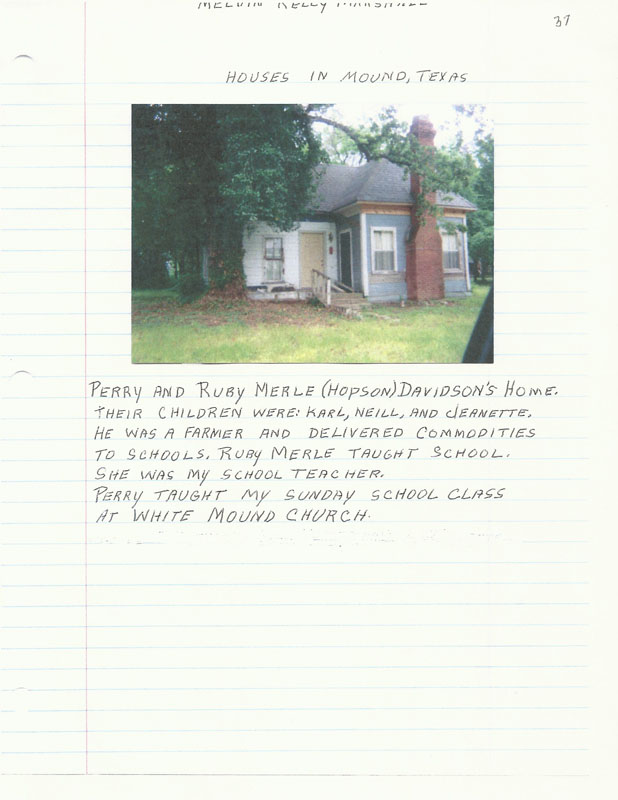 MELVIN KELLY MARSHALL
37
HOUSES IN MOUND, TEXAS
PERRY AND RUBY MERLE (HOPSON) DAVIDSON'S HOME.
THEIR CHILDREN WERE: KARL, NEILL, AND JEANETTE.
HE WAS A FARMER AND DELIVERED COMMODITIES
TO SCHOOLS. RUBY MERLE TAUGHT SCHOOL.
SHE WAS MY SCHOOL TEACHER.
PERRY TAUGHT MY SUNDAY SCHOOL CLASS
AT WHITE MOUND CHURCH.